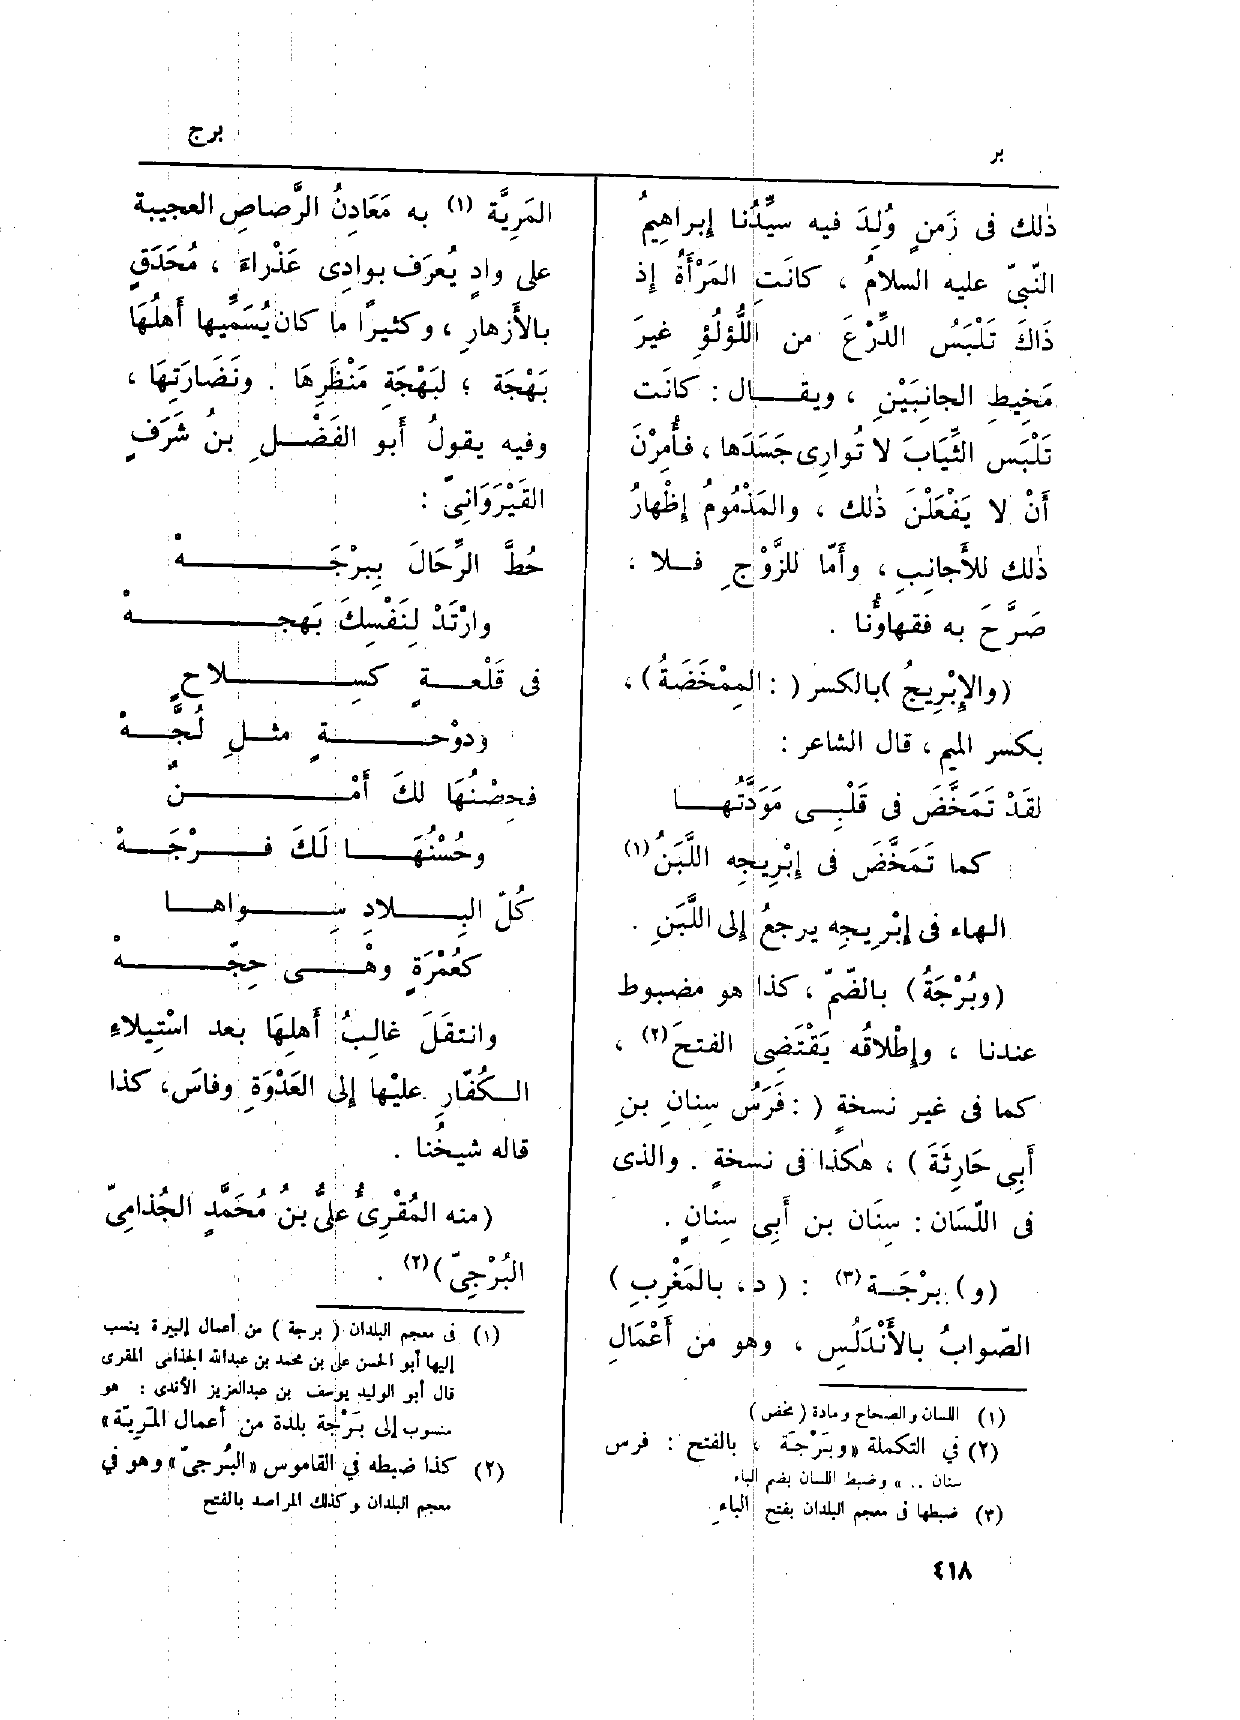 بر
برج
ذٰلك فى زَمنٍ وُلِدَ فيه سيِّدُنا إبراهيمُ
النّبىّ عليه السلامُ ، كانَتِ المَرْأَةُ إذ
ذَاكَ تَلْبَسُ الدِّرْعَ من اللُّؤلُؤِ غيرَ
مَخِيطِ الجانِبَيْنِ ، ويقــال : كانَت
تَلْبَس الثِّيَابَ لا تُوارِى جَسَدَها ، فأُمِرْنَ
أَنْ لا يَفْعَلْنَ ذٰلك ، والمَذْمُومُ إظْهارُ
ذٰلك للأَجانِبِ ، وأَمّا للزَّوْجِ فــلا ،
صَرَّحَ به فقهاؤُنا .
(والإِبْرِيجُ )بالكسر ( : المِمْخَضَةُ ) ،
بكسر الميم ، قال الشاعر :
لقَدْ تَمَخَّضَ فى قَلْبِــى مَوَدَّتُهــا
كما تَمَخَّضَ فى إبْرِيجِه اللَّبَنُ (١)
الهاء فى إبْرِيجِه يرجعُ إلى اللَّبَنِ .
(وبُرْجَةُ ) بالضّمّ ، كذا هو مضبوط
عندنا ، وإطْلاقُه يَقْتَضِى الفتحَ (٢) ،
كما فى غير نسخةٍ ( : فَرَسُ سِنانِ بنِ
أَبِى حَارِثَةَ ) ، هٰكذا فى نسخةٍ . والذى
فى اللّسَان : سِنَان بن أَبِى سِنانٍ .
(و) بَرْجَــة (٣) : ( د ، بالمَغْرِبِ )
الصّوابُ بالأَنْدَلُسِ ، وهو من أَعْمَالِ
(١) اللسان والصحاح ومادة ( مخض )
(٢) في التكملة «وبَرْجَة ، بالفتح : فرس
سنان .. » وضبط اللسان بضم الباء
(٣) ضبطها فى معجم البلدان بفتح الباء
المَرِيَّة (١) به مَعَادِنُ الرَّصاصِ العجيبة
على وادٍ يُعرَف بوادِى عَذْراءَ ، مُحَدَقٍ
بالأَزهارِ ، وكثيرًا ما كان يُسَمِّيها أَهلُها
بَهْجَة ، لبَهْجَةِ مَنْظَرِهَا . ونَضَارَتِهَا ،
وفيه يقولُ أَبو الفَضْــلِ بنُ شَرَفٍ
القَيْرَوَانِىّ :
حُطَّ الرِّحَالَ بِبرْجَــــهْ
وارْتَدْ لِنَفْسِكَ بَهجــــهْ
فى قَلْعــةٍ كسِــــلاحٍ
ودَوْحــــةٍ مثــلِ لُجَّــهْ
فحِصْنُهَا لكَ أَمْــــنٌ
وحُسْنُهَــا لَكَ فــرْجَــهْ
كُلّ البِــلادِ سِــواهــا
كعُمْرَةٍ وهْــى حِجّــــهْ
وانتقَلَ غالِبُ أَهلِهَا بعد اسْتِيلاءِ
الــكُفّارِ عليْها إلى العَدْوَةِ وفاسَ، كذا
قاله شيخُنا .
(منه المُقْرِئُ علىُّ بنُ مُحَمَّدٍ الجُذامِىّ
البُرْجِىّ)(٢) .
(١) فى معجم البلدان ( برجة ) من أعمال إلبيرة ينسب
إليها أبو الحسن على بن محمد بن عبدالله الجذامى المقرى
قال أبو الوليد يوسف بن عبدالعزيز الأندى : هو
منسوب إلى بَرْجة بلدة من أعمال المَرِيّة»
(٢) كذا ضبطه في القاموس «البُرجىّ» وهو في
معجم البلدان وكذلك المراصد بالفتح
٤١٨